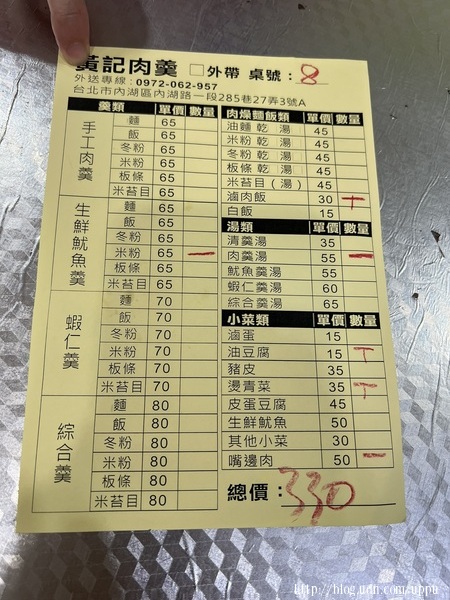 黃記肉羹 □外帶 桌號：8
外送專線：0972-062-957
台北市內湖區內湖路一段285巷27弄3號A
羹類 單價 數量
手工肉羹
麵 65
飯 65
冬粉 65
米粉 65
板條 65
米苔目 65
生鮮魷魚羹
麵 65
飯 65
冬粉 65
米粉 65 一
板條 65
米苔目 65
蝦仁羹
麵 70
飯 70
冬粉 70
米粉 70
板條 70
米苔目 70
綜合羹
麵 80
飯 80
冬粉 80
米粉 80
板條 80
米苔目 80
肉燥麵飯類 單價 數量
油麵 乾 湯 45
米粉 乾 湯 45
冬粉 乾 湯 45
板條 乾 湯 45
米苔目(湯) 45
滷肉飯 30 丅
白飯 15
湯類 單價 數量
清羹湯 35
肉羹湯 55 一
魷魚羹湯 55
蝦仁羹湯 60
綜合羹湯 65
小菜類 單價 數量
滷蛋 15
油豆腐 15 丅
豬皮 35
燙青菜 35 丅
皮蛋豆腐 45
生鮮魷魚 50
其他小菜 30
嘴邊肉 50 一
總價：330
http://blog.udn.com/uppu